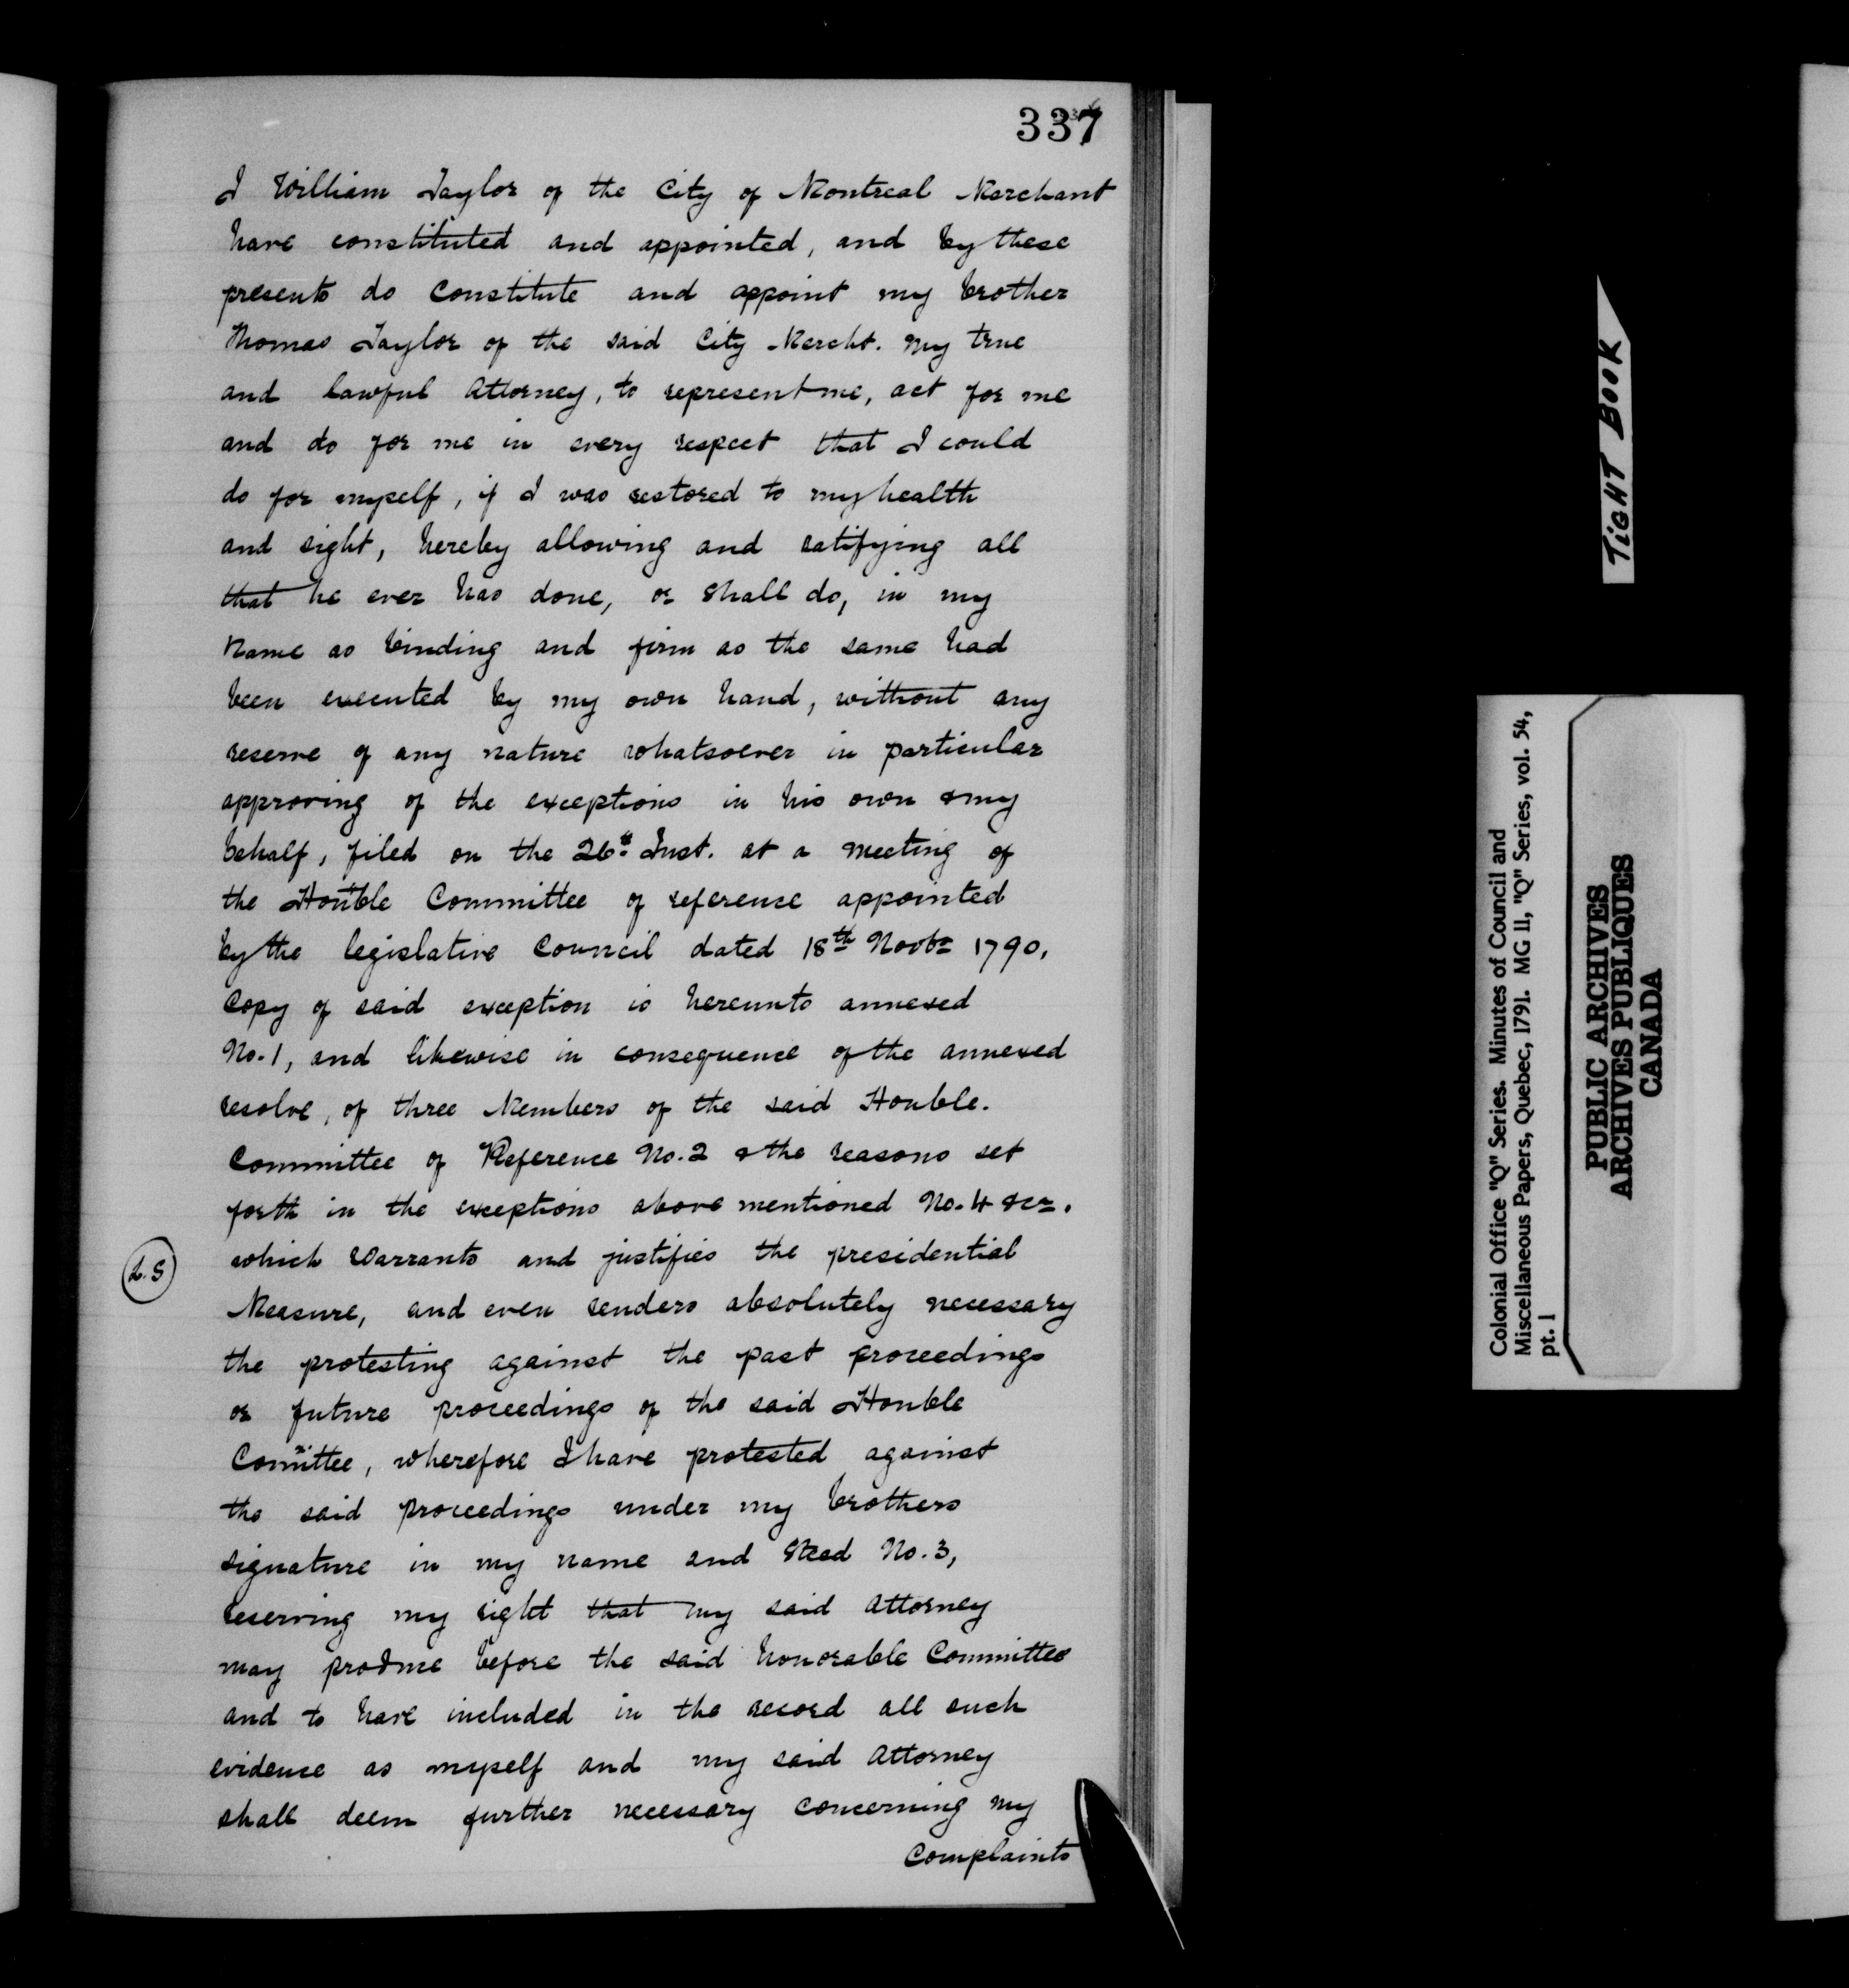 337
I William Taylor of the City of Montreal Merchant
have constituted and appointed, and by these
presents do Constitute and appoint my brother
Thomas Taylor of the said City Mercht. my true
and lawful Attorney, to represent me, act for me
and do for me in every respect that I could
do for myself, if I was restored to my health
and sight, hereby allowing and ratifying all
that he ever has done, or shall do, in my
Name as binding and firm as the same had
been executed by my own hand, without any
reserve of any nature whatsoever in particular
approving of the exceptions in his own & my
behalf, filed on the 26th Inst. at a meeting of
the Honble Committee of reference appointed
by the legislative Council dated 18th Novbr 1790,
Copy of said exception is hereunto annexed
No. 1, and likewise in consequence of the annexed
resolve, of three Members of the said Honble.
Committee of Reference No. 2 & the reasons set
forth in the exceptions above mentioned No. 4 &ca.
which Warrants and justifies the presidential
(L.S)
Measure, and even renders absolutely necessary
the protesting against the past proceedings
or future proceedings of the said Honble
Comittee, wherefore I have protested against
the said proceedings under my brothers
signature in my name and Stead No. 3,
reserving my right that my said Attorney
may produce before the said honorable Committee
and to have included in the record all such
evidence as myself and my said Attorney
shall deem further necessary concerning my
Complaints
TIGHT BOOK
Colonial Office "Q" Series. Minutes of Council and
Miscellaneous Papers, Quebec, 1791. MG 11, "Q" Series, vol. 54,
pt. 1
PUBLIC ARCHIVES
ARCHIVES PUBLIQUES
CANADA